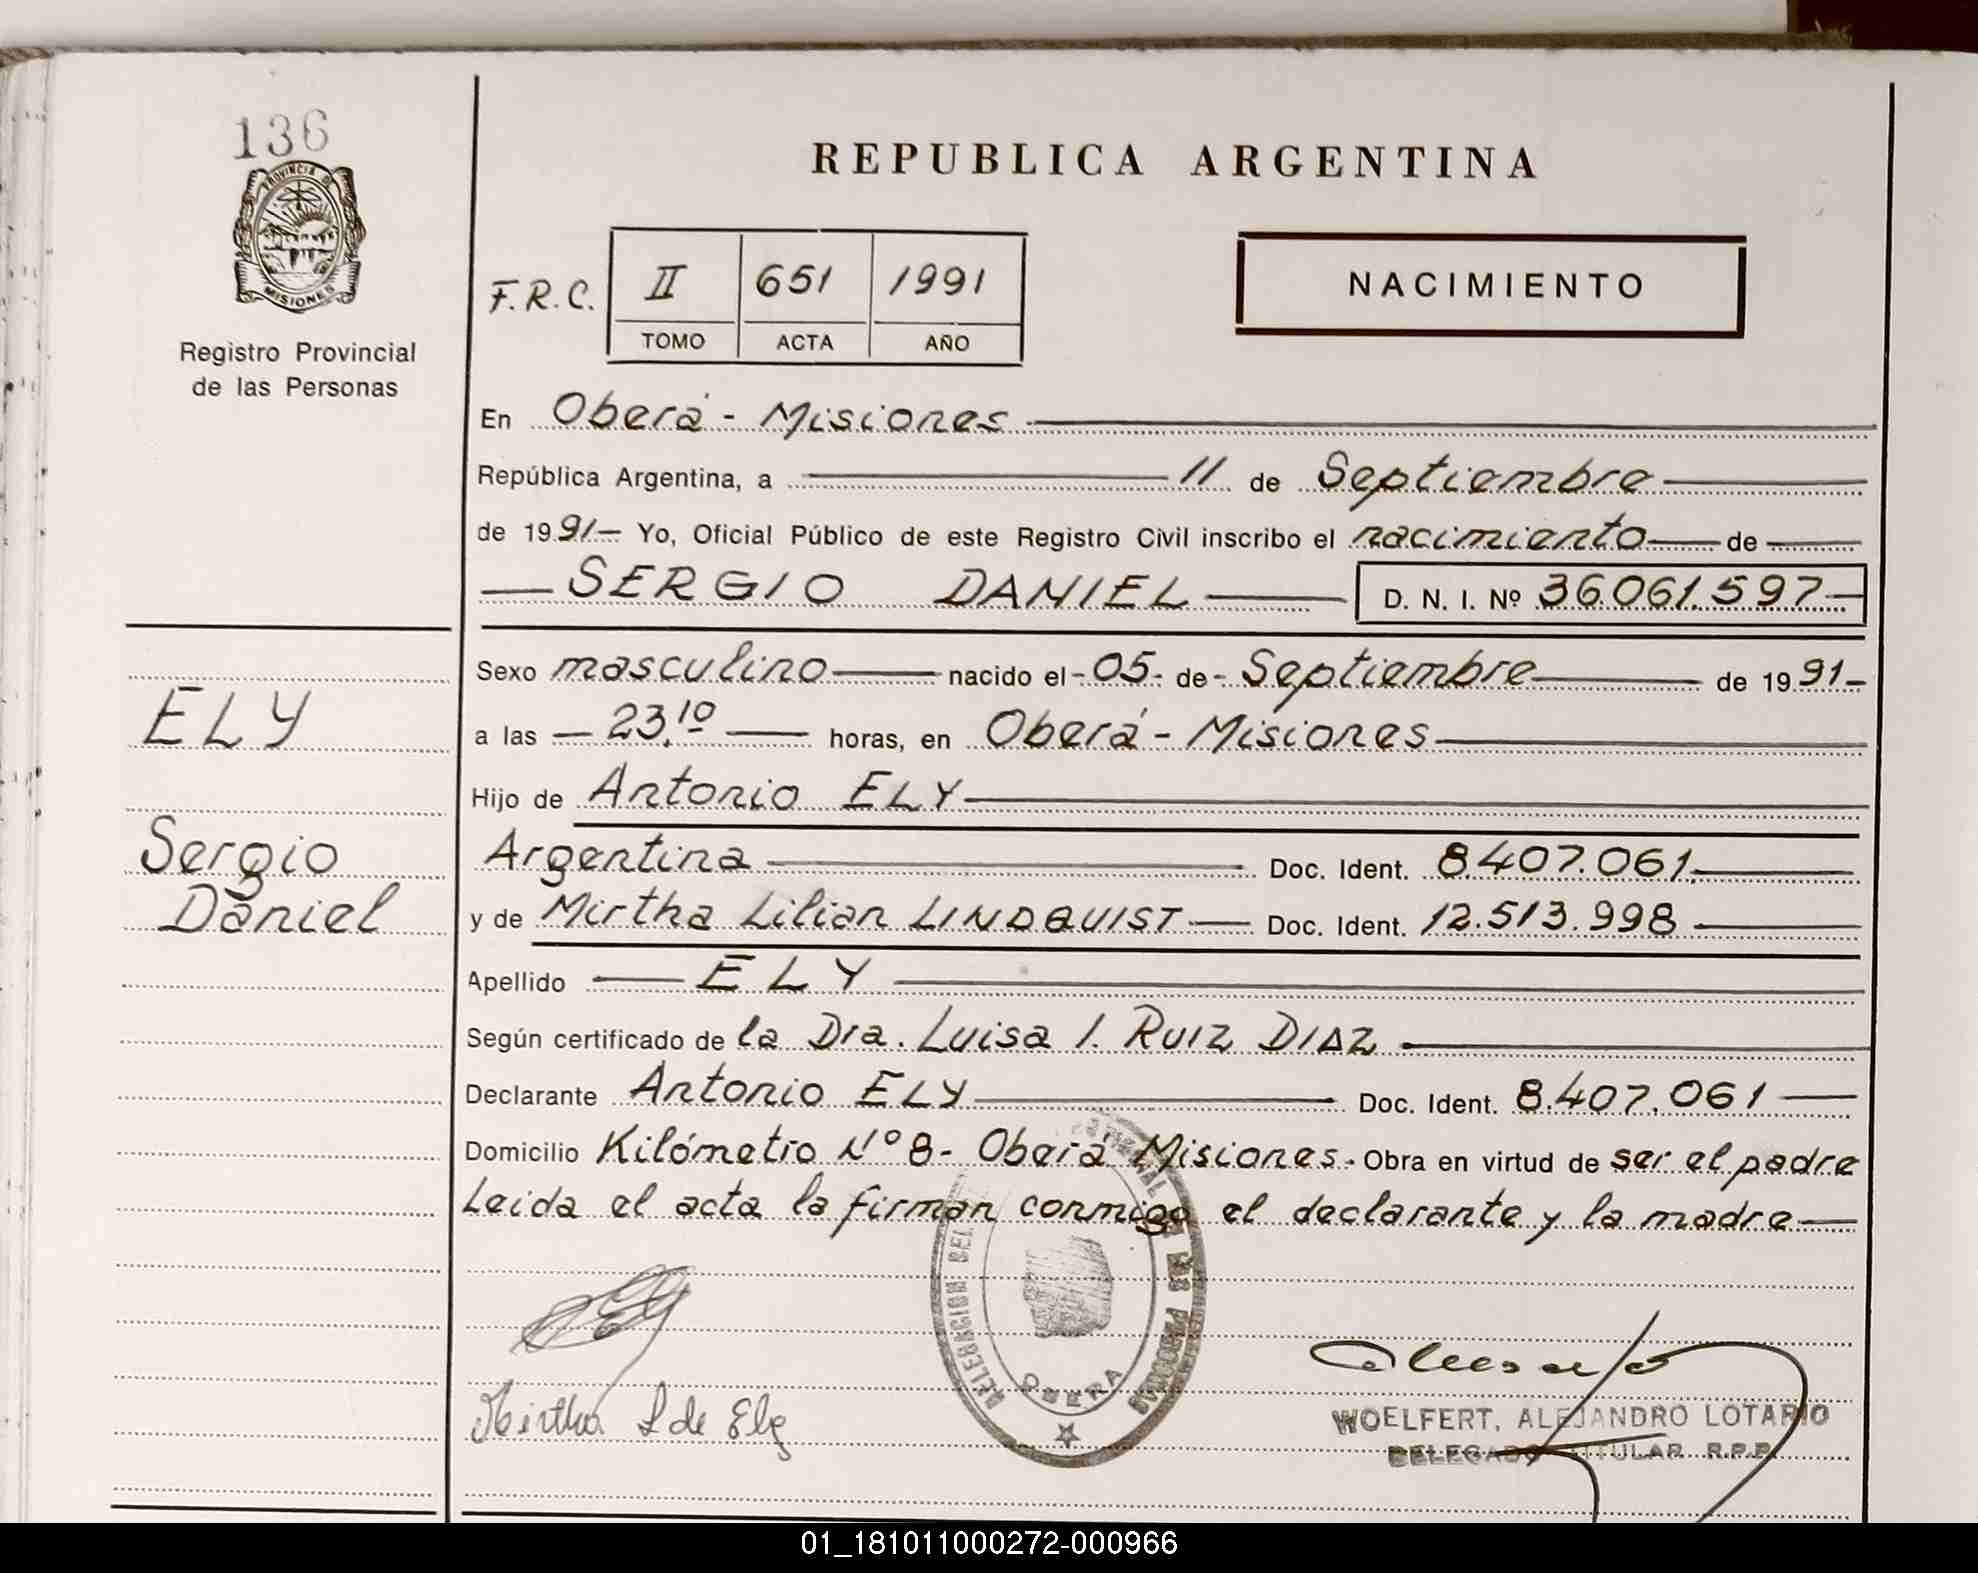 136
PROVINCIA DE
MISIONES
Registro Provincial
de las Personas
ELY
Sergio
Daniel
REPUBLICA ARGENTINA
F.R.C.
II 651 1991
TOMO ACTA AÑO
NACIMIENTO
En Oberá - Misiones
República Argentina, a 11 de Septiembre
de 1991- Yo, Oficial Público de este Registro Civil inscribo el nacimiento de
SERGIO DANIEL D. N. I. Nº 36.061.597
Sexo masculino nacido el -05- de - Septiembre de 1991-
a las 23,10 horas, en Oberá - Misiones
Hijo de Antonio ELY
Argentina Doc. Ident. 8.407.061.
y de Mirtha Lilian LINDQUIST Doc. Ident. 12.513.998
Apellido ELY
Según certificado de la Dra. Luisa I. RUIZ DIAZ
Declarante Antonio ELY Doc. Ident. 8.407.061
Domicilio Kilómetro Nº 8- Oberá Misiones. Obra en virtud de ser el padre
Leida el acta la firman conmigo el declarante y la madre
DELEGACION DEL
DE LAS PERSONAS
OBERA
Mirtha L de Ely
WOELFERT, ALEJANDRO LOTARIO
DELEGADO TITULAR R.P.P.
01_181011000272-000966